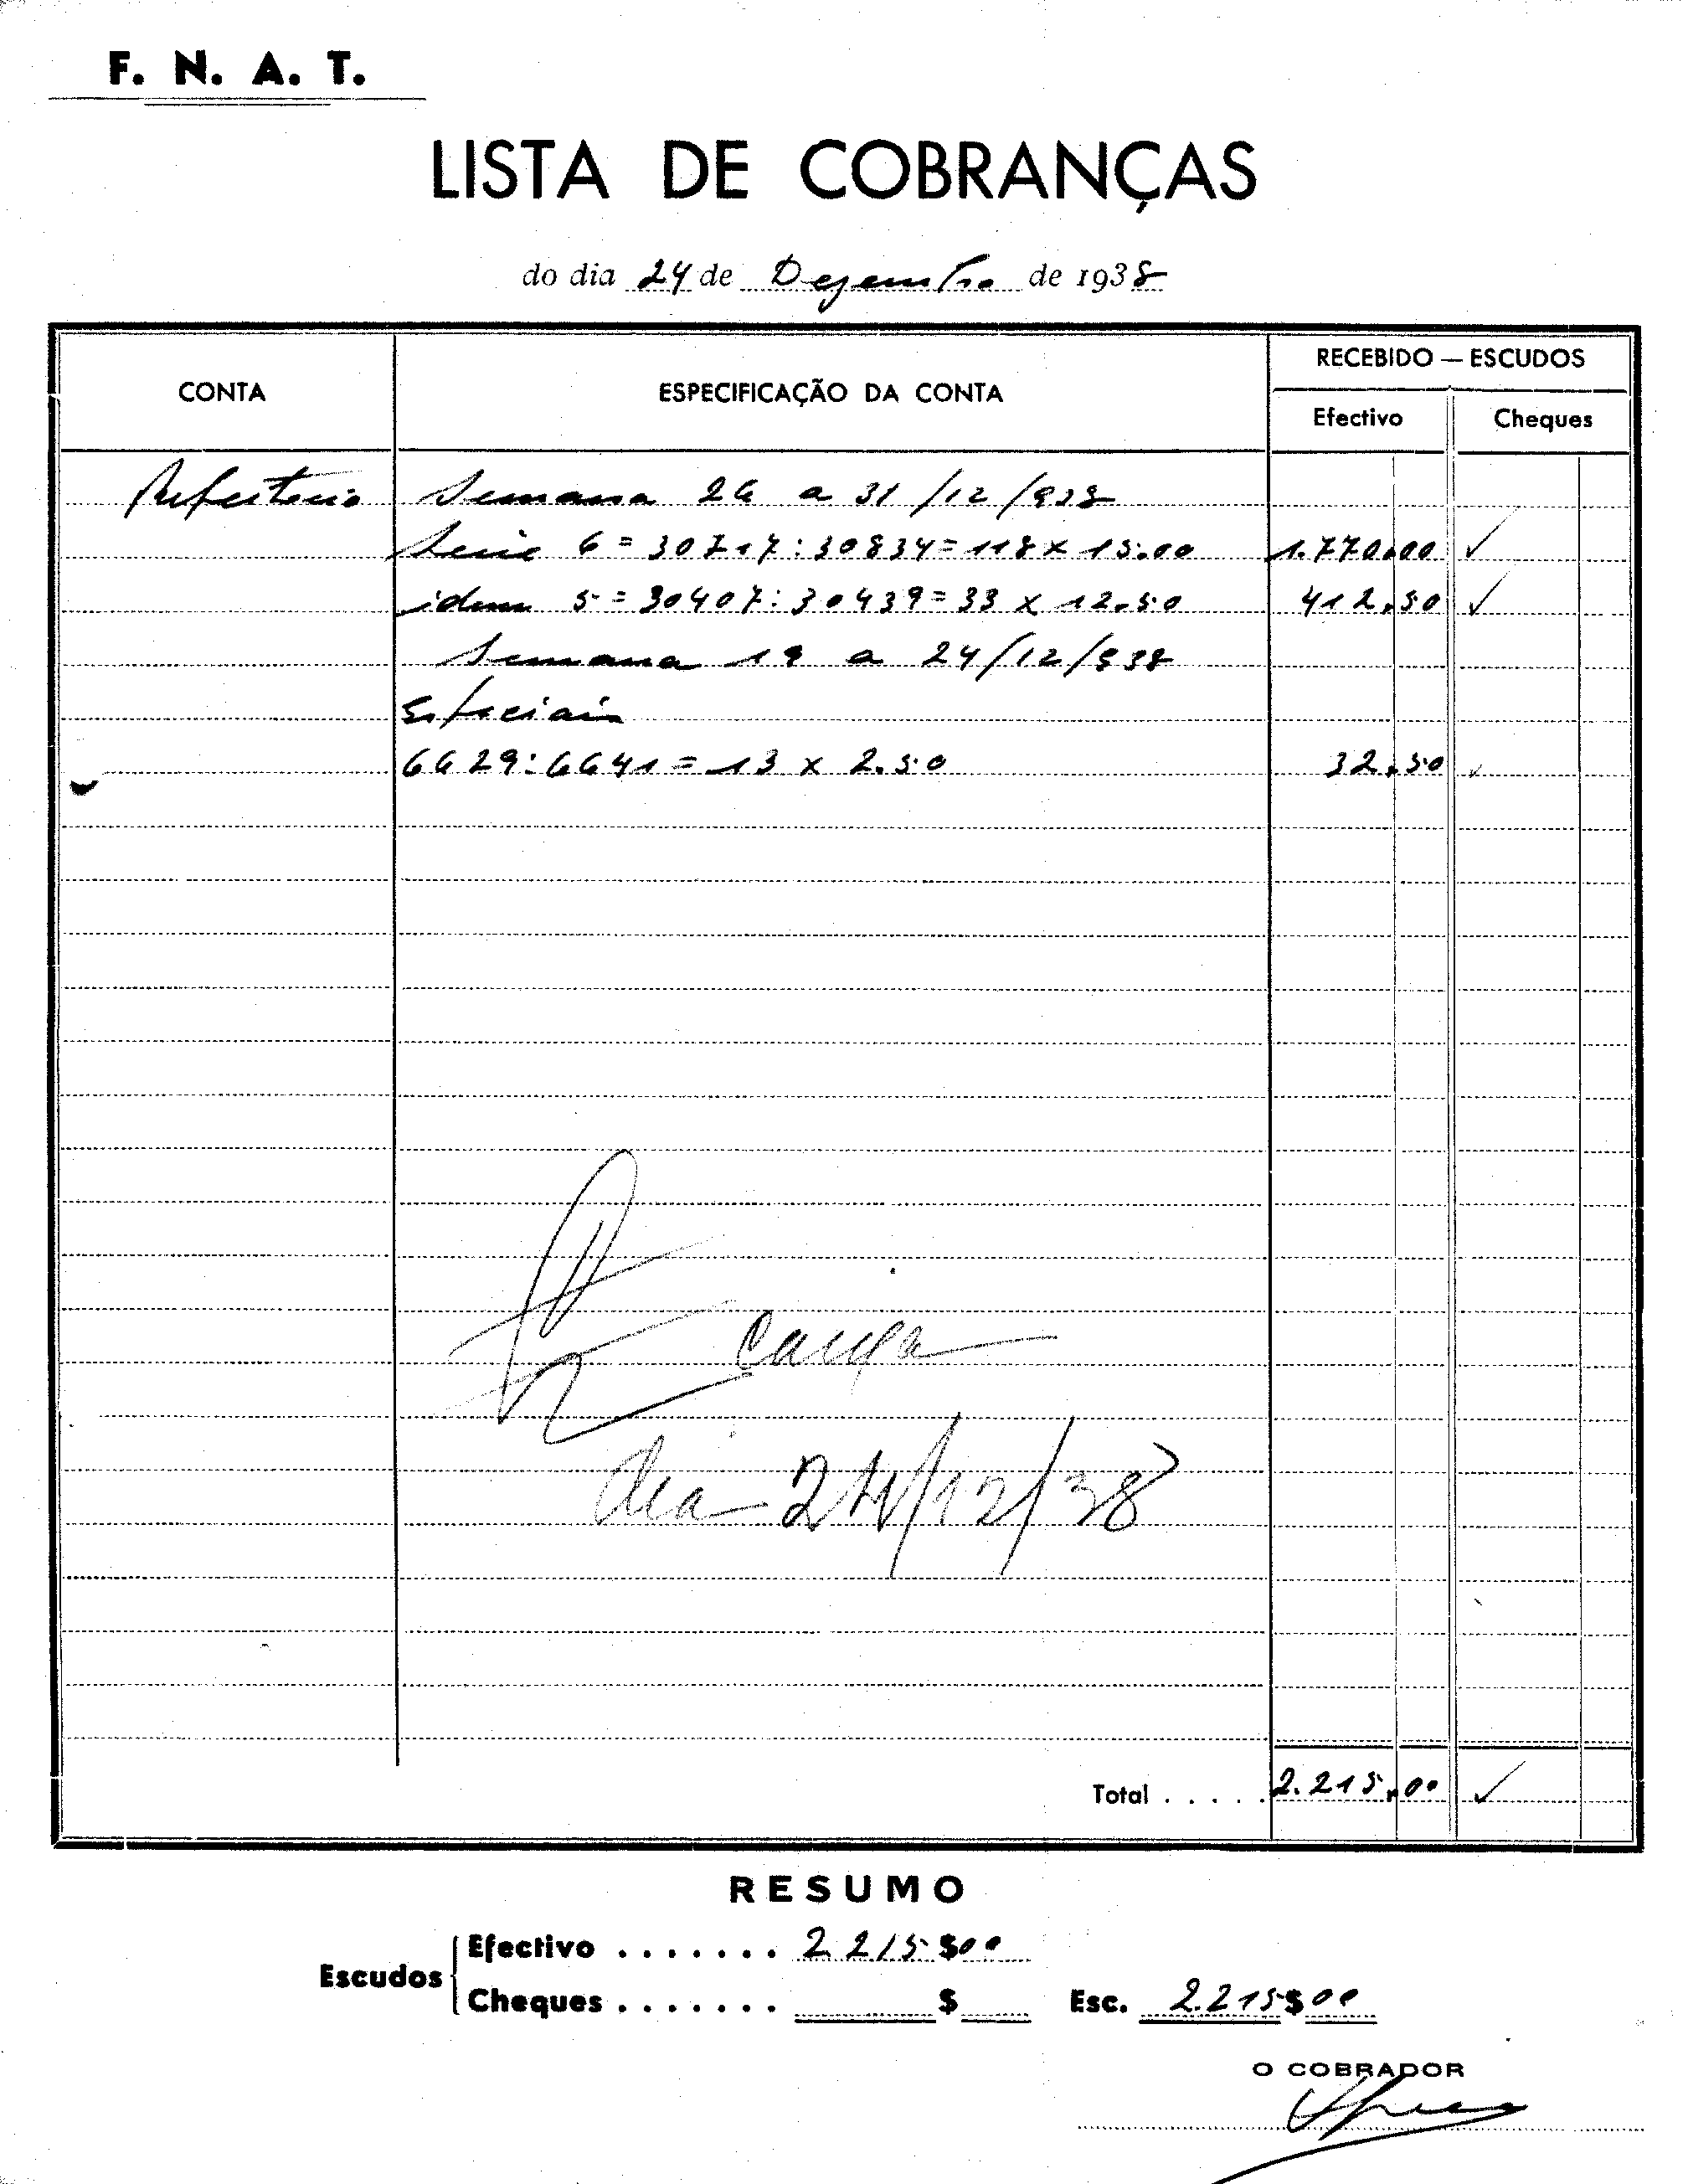 F. N. A. T.
LISTA DE COBRANÇAS
do dia 24 de Dezembro de 1938
CONTA
ESPECIFICAÇÃO DA CONTA
RECEBIDO — ESCUDOS
Efectivo
Cheques
Refeitorio Semana 26 a 31/12/938
Serie 6 = 30717:30834 = 118 x 15.00 1.770.00 ✓
idem 5 = 30407:30439 = 33 x 12.50 412.50 ✓
Semana 19 a 24/12/938
Especiais
6629:6641 = 13 x 2.50 32.50 ✓
dia 24/12/38
Total . . . . . 2.215.00 ✓
RESUMO
Escudos
Efectivo . . . . . . . 2215$00
Cheques . . . . . . . $ Esc. 2.215$00
O COBRADOR